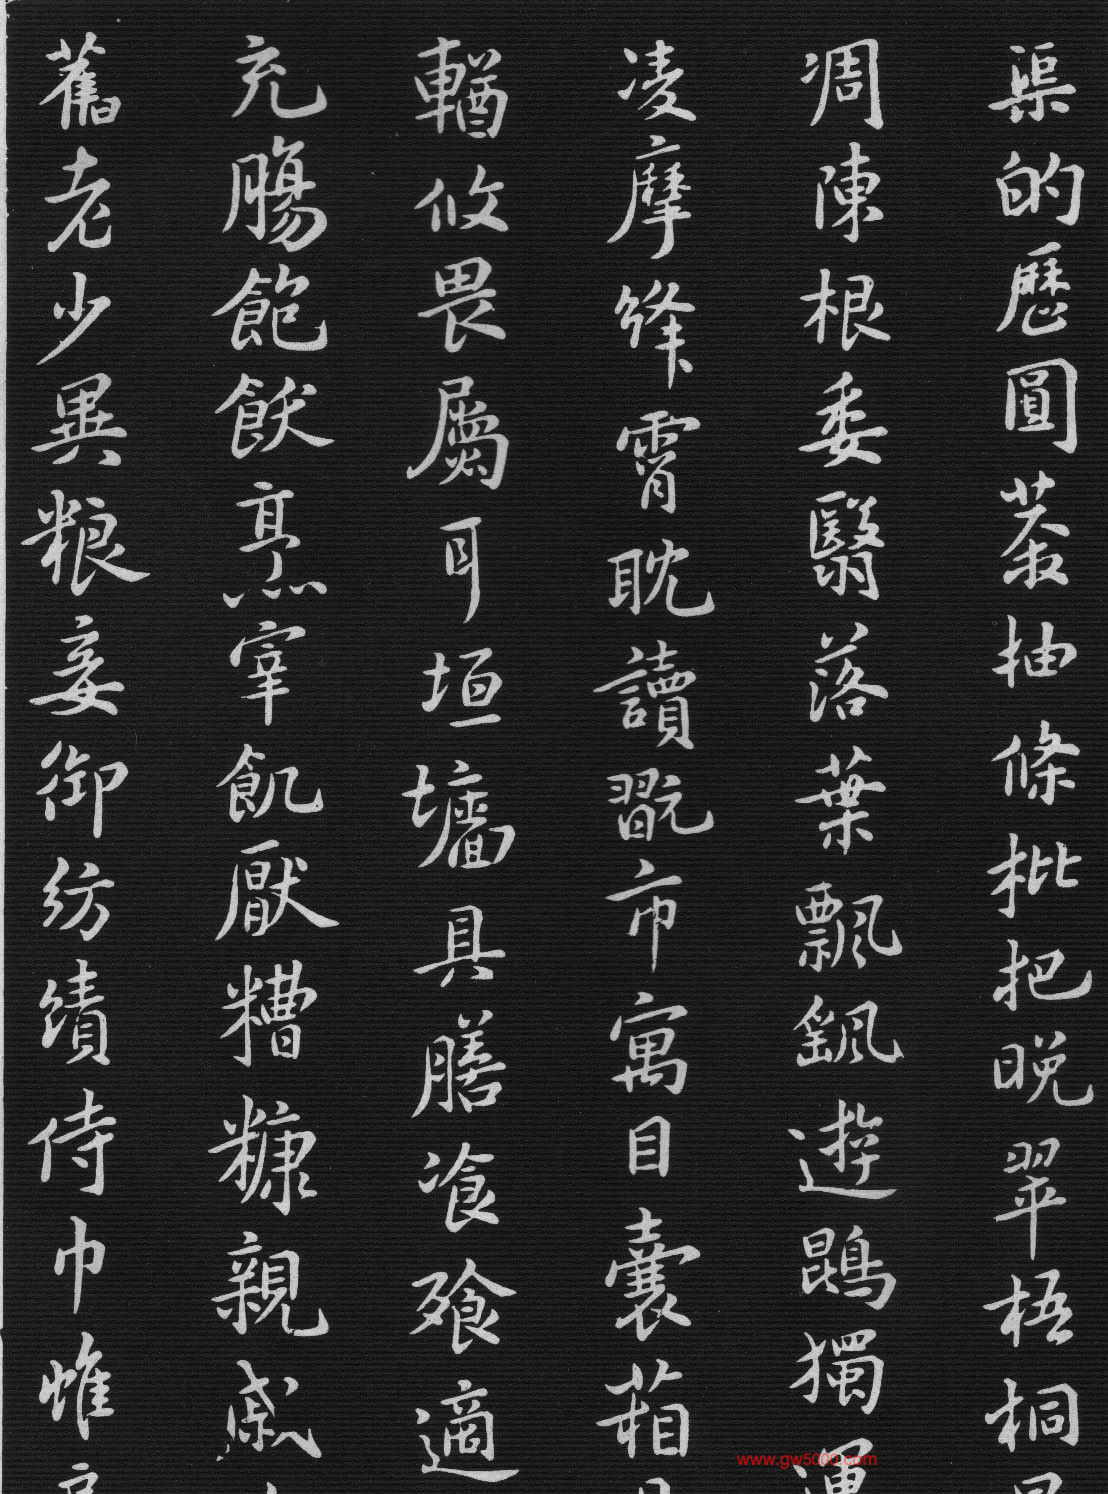 渠的歷圓莽抽條枇把晚翠梧桐
凋陳根委翳落葉飄飖遊鵾獨運
凌摩絳霄耽讀翫市寓目囊葙
輶攸畏屬耳垣墻具膳飡飱適
充腸飽飫烹宰飢厭糟糠親戚
舊老少異粮妾御紡績侍巾帷
www.gw5000.com